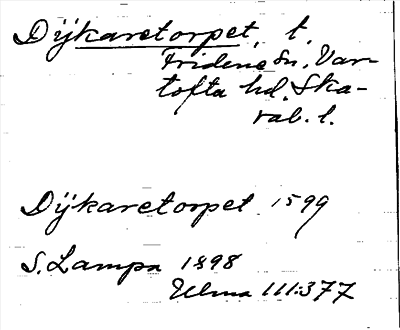 Dÿkaretorpet, t.
Fridene sn, Var-
tofta hd. Ska-
rab. l.
Dÿkaretorpet 1599
S. Lampa 1898
Ulma 111:377